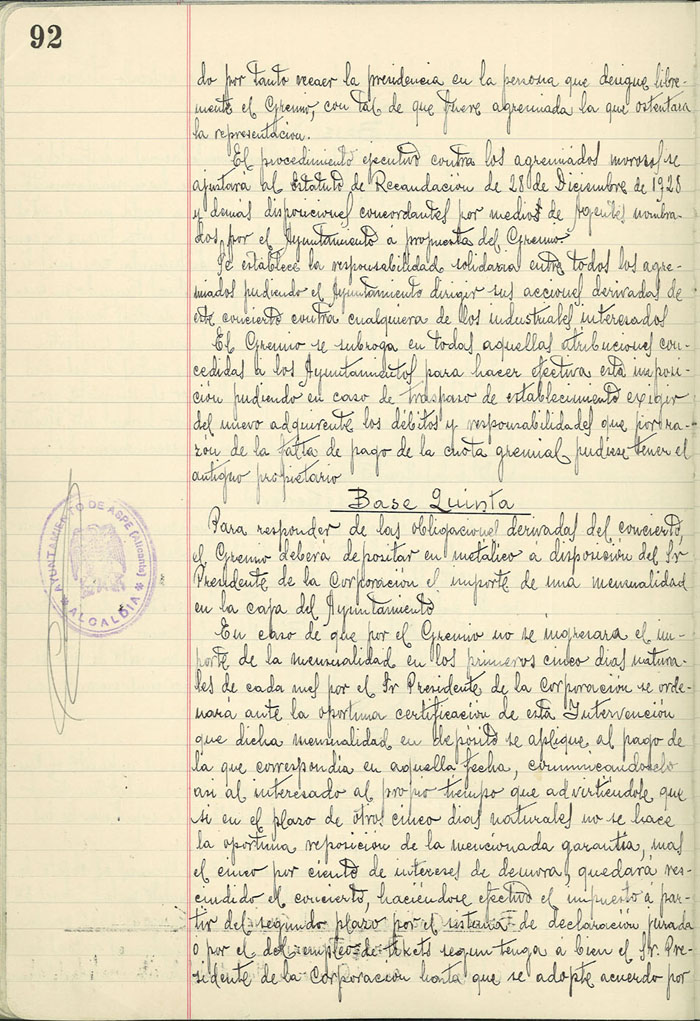 92
do por tanto recaer la presidencia en la persona que designe libre-
mente el Gremio, con tal de que fuere agremiada la que ostentara
la representacion.
El procedimiento ejecutivo contra los agremiados morosos se
ajustará al Estatuto de Recaudación de 28 de Diciembre de 1928
y demás disposiciones concordantes por medio de Agentes nombra-
dos por el Ayuntamiento á propuesta del Gremio.
Se establece la responsabilidad solidaria entre todos los agre-
miados pudiendo el Ayuntamiento dirigir sus acciones derivadas de
este concierto contra cualquiera de los industriales interesados
El Gremio se subroga en todas aquellas atribuciones con-
cedidas á los Ayuntamientos para hacer efectiva esta imposi-
ción pudiendo en caso de traspaso de establecimiento exigir
del nuevo adquirente los débitos y responsabilidades que por ra-
zón de la falta de pago de la cuota gremial pudiese tener el
antiguo propietario
Base Quinta
Para responder de las obligaciones derivadas del concierto,
el Gremio deberá depositar en metálico a disposición del Sr
Presidente de la Corporación el importe de una mensualidad
en la caja del Ayuntamiento
En caso de que por el Gremio no se ingresara el im-
porte de la mensualidad en los primeros cinco dias natura-
les de cada mes por el Sr Presidente de la Corporación se orde-
nará ante la oportuna certificación de esta Intervención
que dicha mensualidad en depósito se aplique al pago de
la que correspondia en aquella fecha, comunicandoselo
asi al interesado al propio tiempo que advirtiéndole que
si en el plazo de otros cinco dias naturales no se hace
la oportuna reposición de la mencionada garantia, mas
el cinco por ciento de intereses de demora, quedará res-
cindido el concierto, haciéndose efectivo el impuesto á par-
tir del segundo plazo por el sistema de declaración jurada
ó por el del empleo de tikets segun tenga á bien el Sr. Pre-
sidente de la Corporacion hasta que se adopte acuerdo por
AYUNTAMIENTO DE ASPE (Alicante)
ALCALDIA